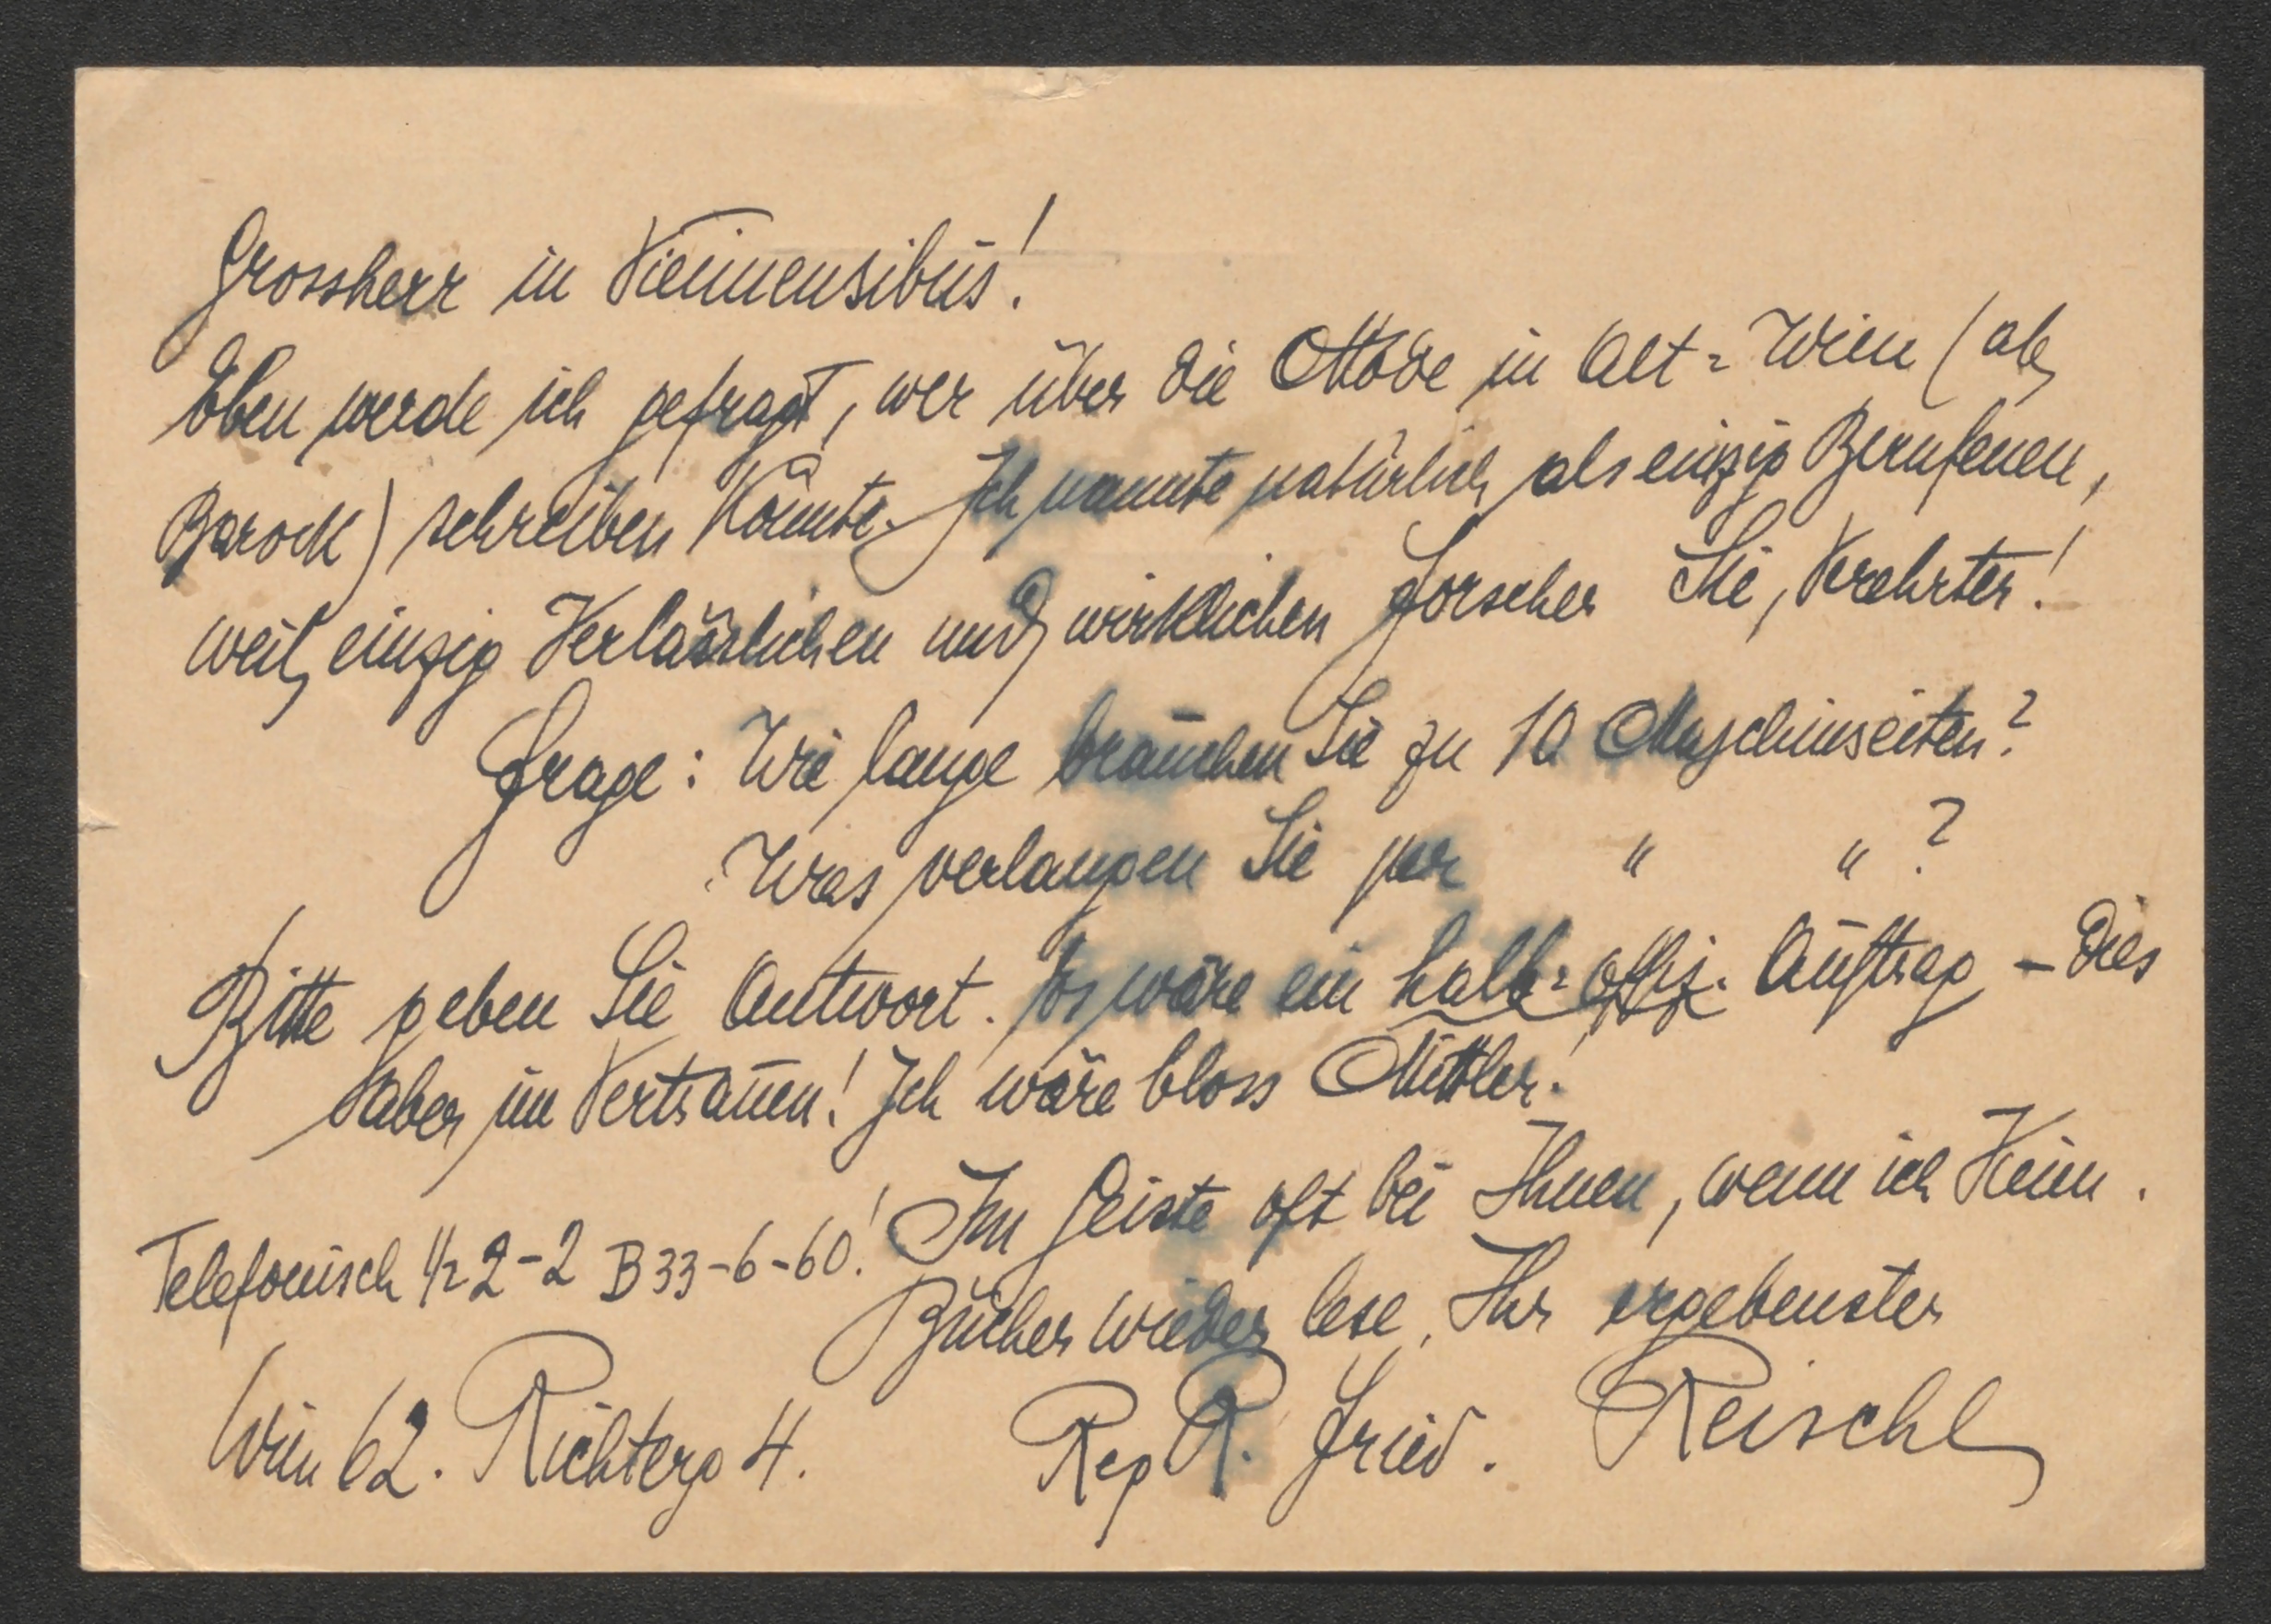 Grossherr in Viennensibus!
Eben werde ich gefragt, wer über die Mode in Alt=Wien (ab
Barock) schreiben könnte. Ich nannte natürlich als einzig Berufenen,
weil einzig Verlässlichen und wirklichen Forscher Sie, Verehrter!
Frage: Wie lange brauchen Sie zu 10 Maschinseiten?
Was verlangen Sie per " " ?
Bitte geben Sie Antwort. Es wäre ein halb=offiz. Auftrag – dies
aber im Vertrauen! Ich wäre bloss Mittler!
Telefonisch 1/2 2-2 B 33-6-60! Im Geiste oft bei Ihnen, wenn ich Ihre
Bücher wieder lese, Ihr ergebenster
Wien 62. Richterg 4. Reg R. Fried. Reischl